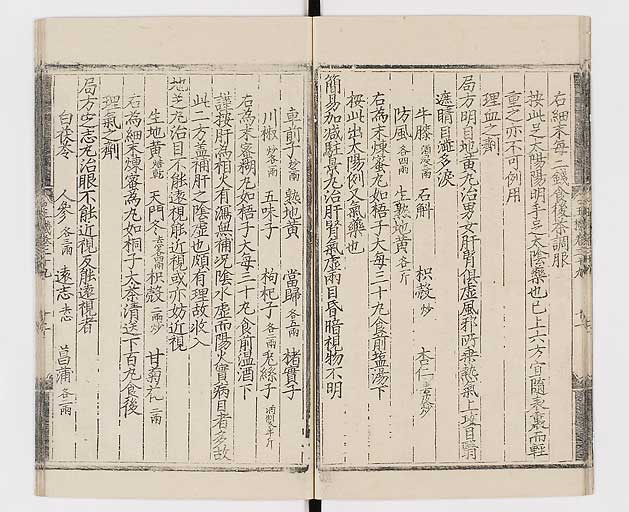 右爲細末每二錢食後茶調服
按此足太陽陽明手足太陰藥也已上六方宜隨表裏而輕
重之亦不可例用
理血之劑
局方明目地黃丸治男女肝腎俱虛風邪所乘熱氣上攻目翳
遮睛目澁多淚
牛膝 酒浸三兩 石斛 枳殼 炒 杏仁 去皮炒
防風 各四兩 生熟地黃 各一斤
右爲末煉蜜丸如梧子大每三十丸食前塩湯下
按此出太陽例人氣藥也
簡易加減駐景丸治肝腎氣虛兩目昏暗視物不明
車前子 炒二兩 熟地黃 當歸 各五兩 楮實子
川椒 炒各一兩 五味子 枸杞子 各二兩 兎絲子 酒製半斤
右爲末蜜糊丸如梧子大每三十丸食前温酒下
謹按肝爲相火有瀉無補況陰水虛而陽火實病目者多故
此二方盖補肝之陰虛也頗有理故收入
地芝丸治目不能遠視能近視或亦妨近視
生地黃 焙乾 天門冬 枳殼 二兩炒 甘菊花 二兩
右爲細末煉蜜爲丸如桐子大茶清送下百丸食後
理氣之劑
局方定志丸治眼不能近視反能遠視者
白茯苓 人參 各三兩 遠志 去心 菖蒲 各二兩